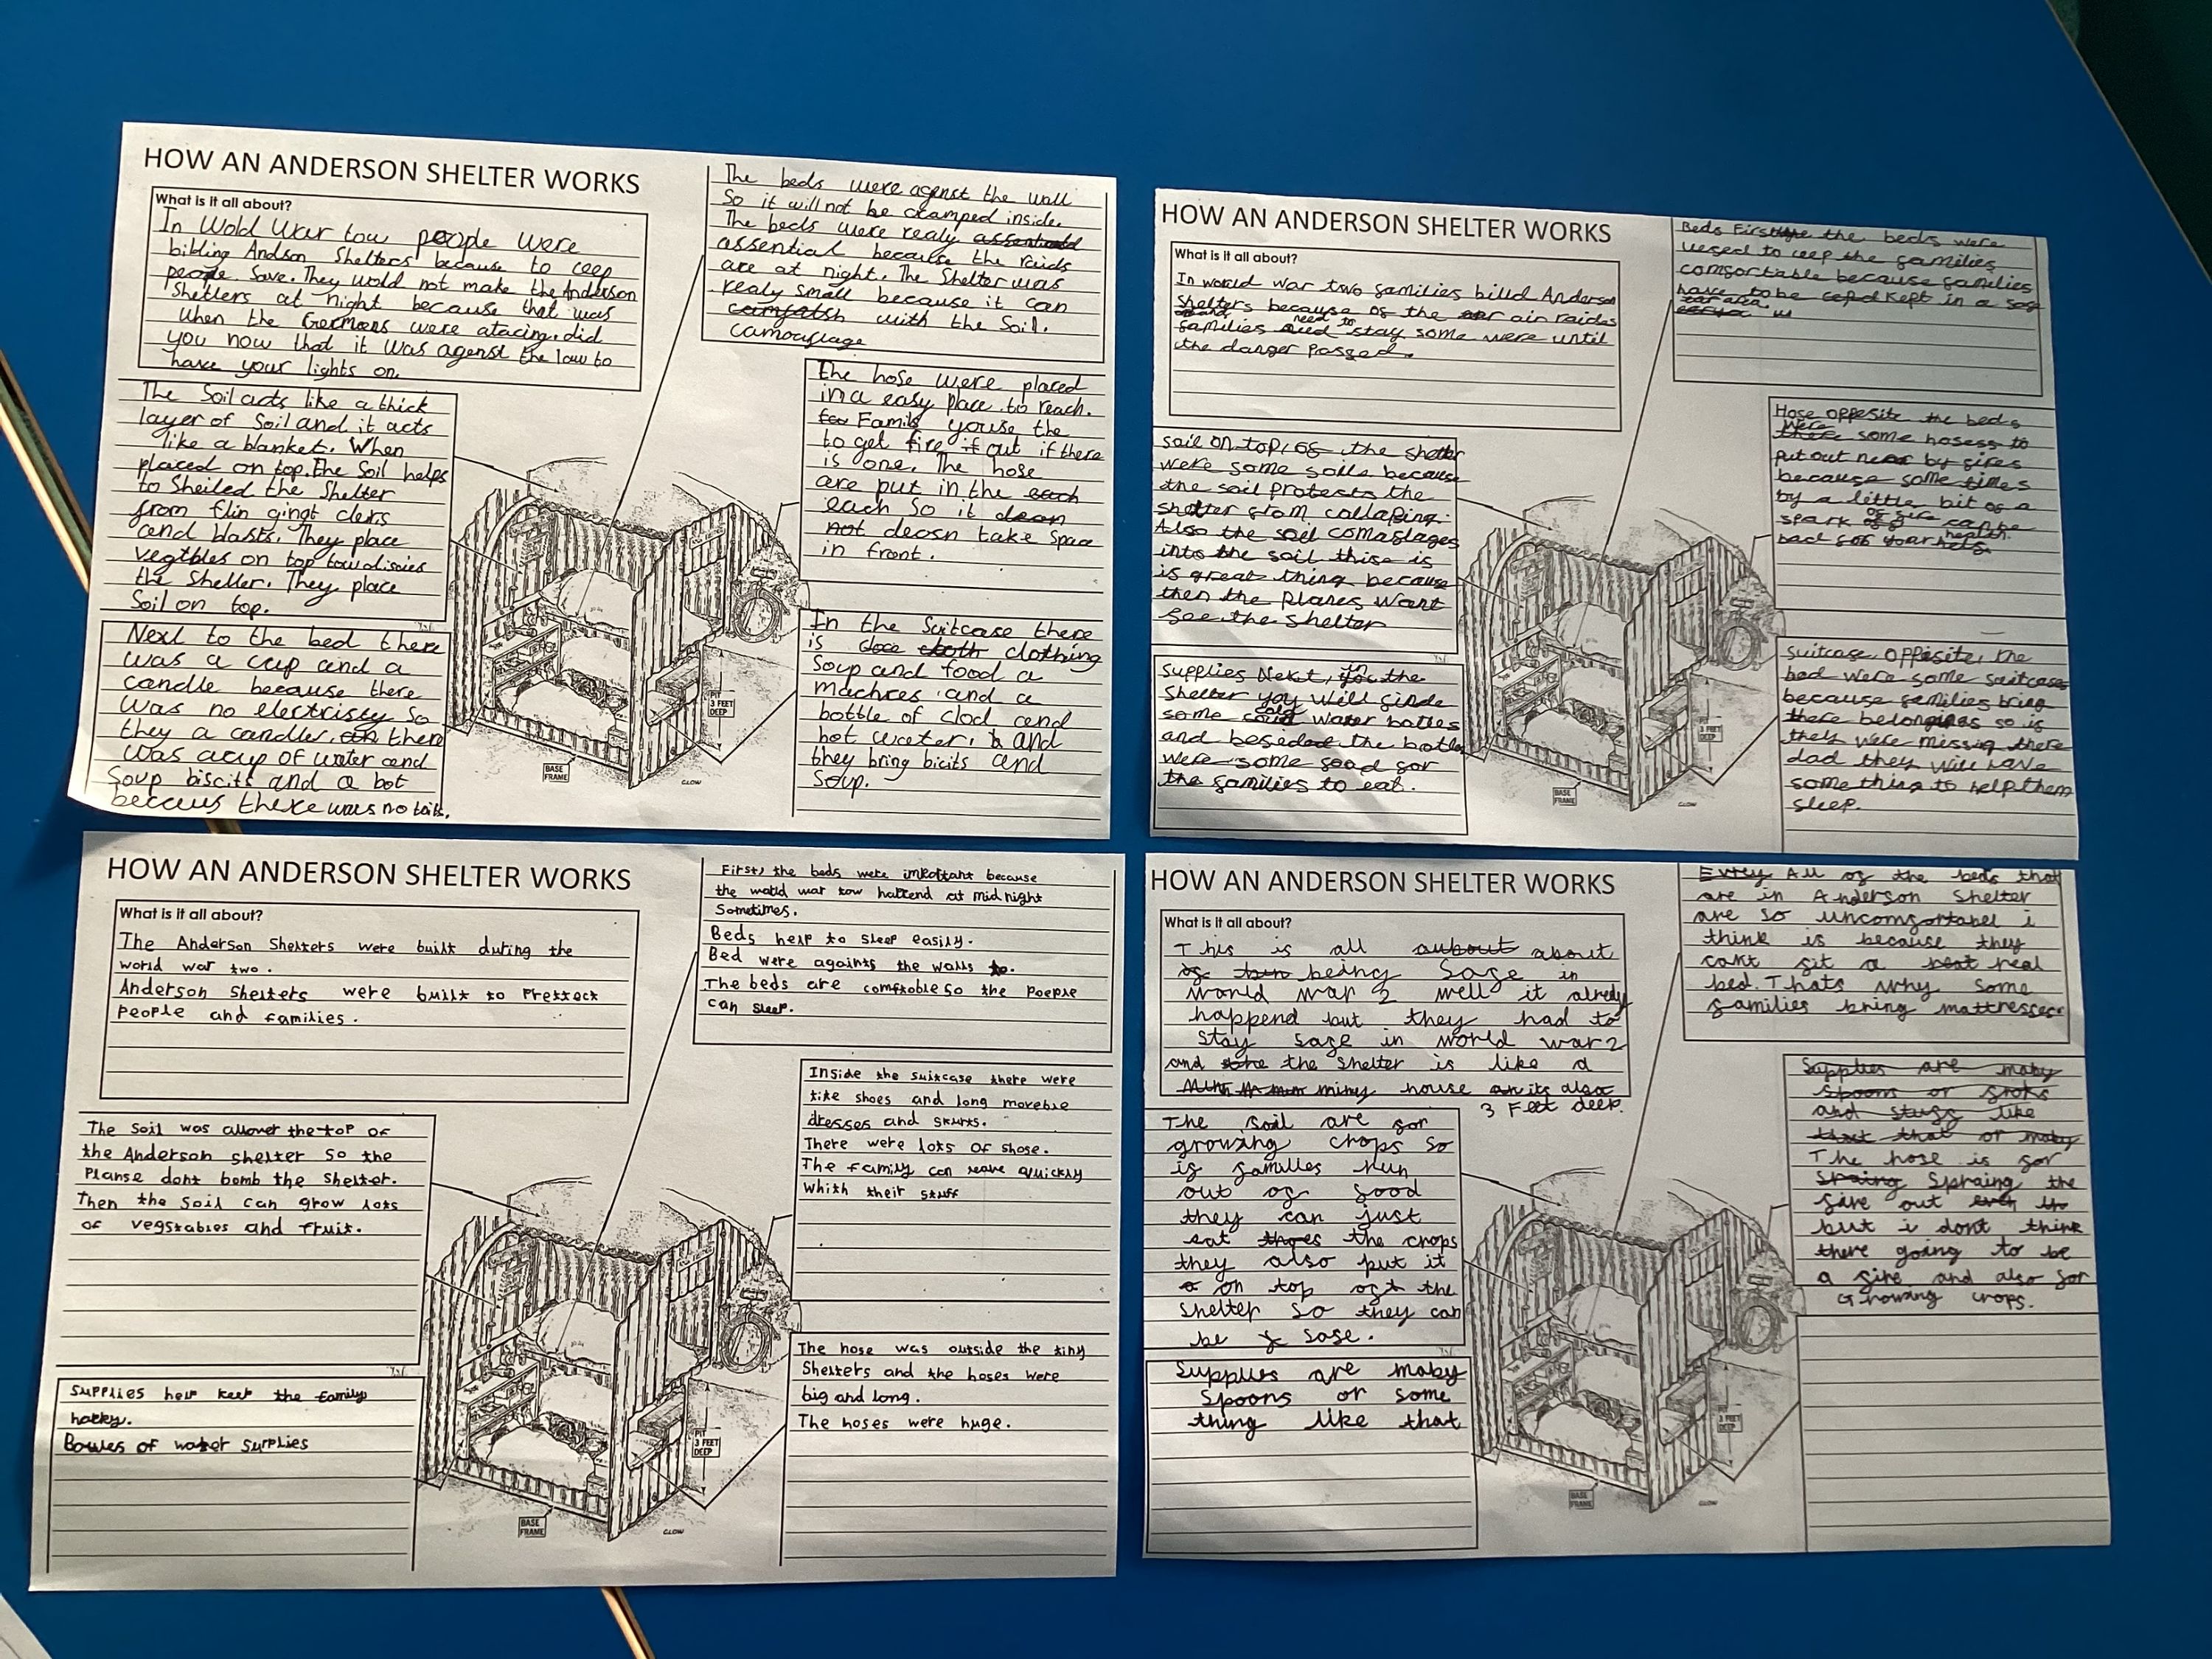 HOW AN ANDERSON SHELTER WORKS
What is it all about?
In Wold War tow people were
bilding Andson Shelters because to ceep
people save. They wold not make the Anderson
Shetlers at night because that was
when the Germens were atacing. did
you now that it was agenst the law to
have your lights on.
The beds were agenst the wall
So it will not be cramped inside.
The beds were realy
assential because the raids
are at night. The Shelter was
realy small because it can
with the Soil.
camouflage
The Soil acts like a thick
layer of Soil and it acts
like a blanket. When
placed on top. the Soil helps
to Sheiled the Shelter
from
and blasts. They place
vegtbles on top
the Sheller. They place
Soil on top.
the hose were placed
in a easy place to reach.
Famils youse the
to get fire out if there
is one. The hose
are put in the
each So it
not deosn take Space
in front.
Next to the bed there
was a cup and a
candle because there
was no electrisity So
they a candler. there
was a cup of water and
Soup biscits and a bot
beccaus there was no toils.
In the Suitcase there
is clothing
Soup and food a
machres and a
bottle of clod and
hot water. and
they bring bicits and
Soup.
3 FEET
DEEP
BASE
FRAME
HOW AN ANDERSON SHELTER WORKS
What is it all about?
In world war two families billd Anderson
shelters because of the air raids
and families need to stay some were until
the danger passed.
Beds First the beds were
uesed to ceep the families
comfortable because families
have to be kept in a
soil on top, of the shelter
were some soils because
the soil protests the
shelter from collaping.
Also the soil comaflages
into the soil thise is
is great thing because
then the planes want
see the shelter
Hose opposite the beds
were some hosess to
put out near by fires
because some times
by a little bit of a
spark of fire can be
bad for your health.
supplies Next, in the
shelter you will finde
some water botles
and besided the botles
were some food for
the families to eat.
suitcase, opposite, the
bed were some suitcases
because families bring
there belongings so if
they were missing there
dad they will have
something to help them
sleep.
3 FEET
DEEP
BASE
FRAME
HOW AN ANDERSON SHELTER WORKS
What is it all about?
The Anderson Shelters were built during the
world war two.
Anderson Shelters were built to Pretteck
people and families.
First, the beds were imkortant because
the world war tow hattend at mid night
Sometimes.
Beds help to sleep easily.
Bed were againts the walls
The beds are comftoble so the poeple
can sleep.
The Soil was allover the top of
the Anderson shelter so the
planse dont bomb the shelter.
Then the soil can grow lots
of vegstables and fruit.
Inside the suitcase there were
like shoes and long moveble
dresses and skirts.
There were lots of shose.
The family can leave quickly
whith their stuff
Supplies help keep the family
Bowles of water supplies
The hose was outside the tiny
Shelters and the hoses were
big and long.
The hoses were huge.
PIT
3 FEET
DEEP
BASE
FRAME
HOW AN ANDERSON SHELTER WORKS
What is it all about?
This is all about
being Safe in
world war 2 well it alredy
happend but they had to
stay safe in world war 2
and the shelter is like a
miny house its also
3 Feet deep.
All of the beds that
are in Anderson Shelter
are so uncomfortabel i
think is because they
cant fit a real
bed. Thats why some
families bring mattresses
The soil are for
growing crops so
if families run
out of food
they can just
eat the crops
they also put it
on top of the
shelter so they can
be safe.
Supplies are maby
spoons or
and stuff like
that or maby
The hose is for
Spraing the
fire out
but i dont think
there going to be
a fire and also for
Growing crops.
Supplies are maby
spoons or some
thing like that
3 FEET
DEEP
BASE
FRAME